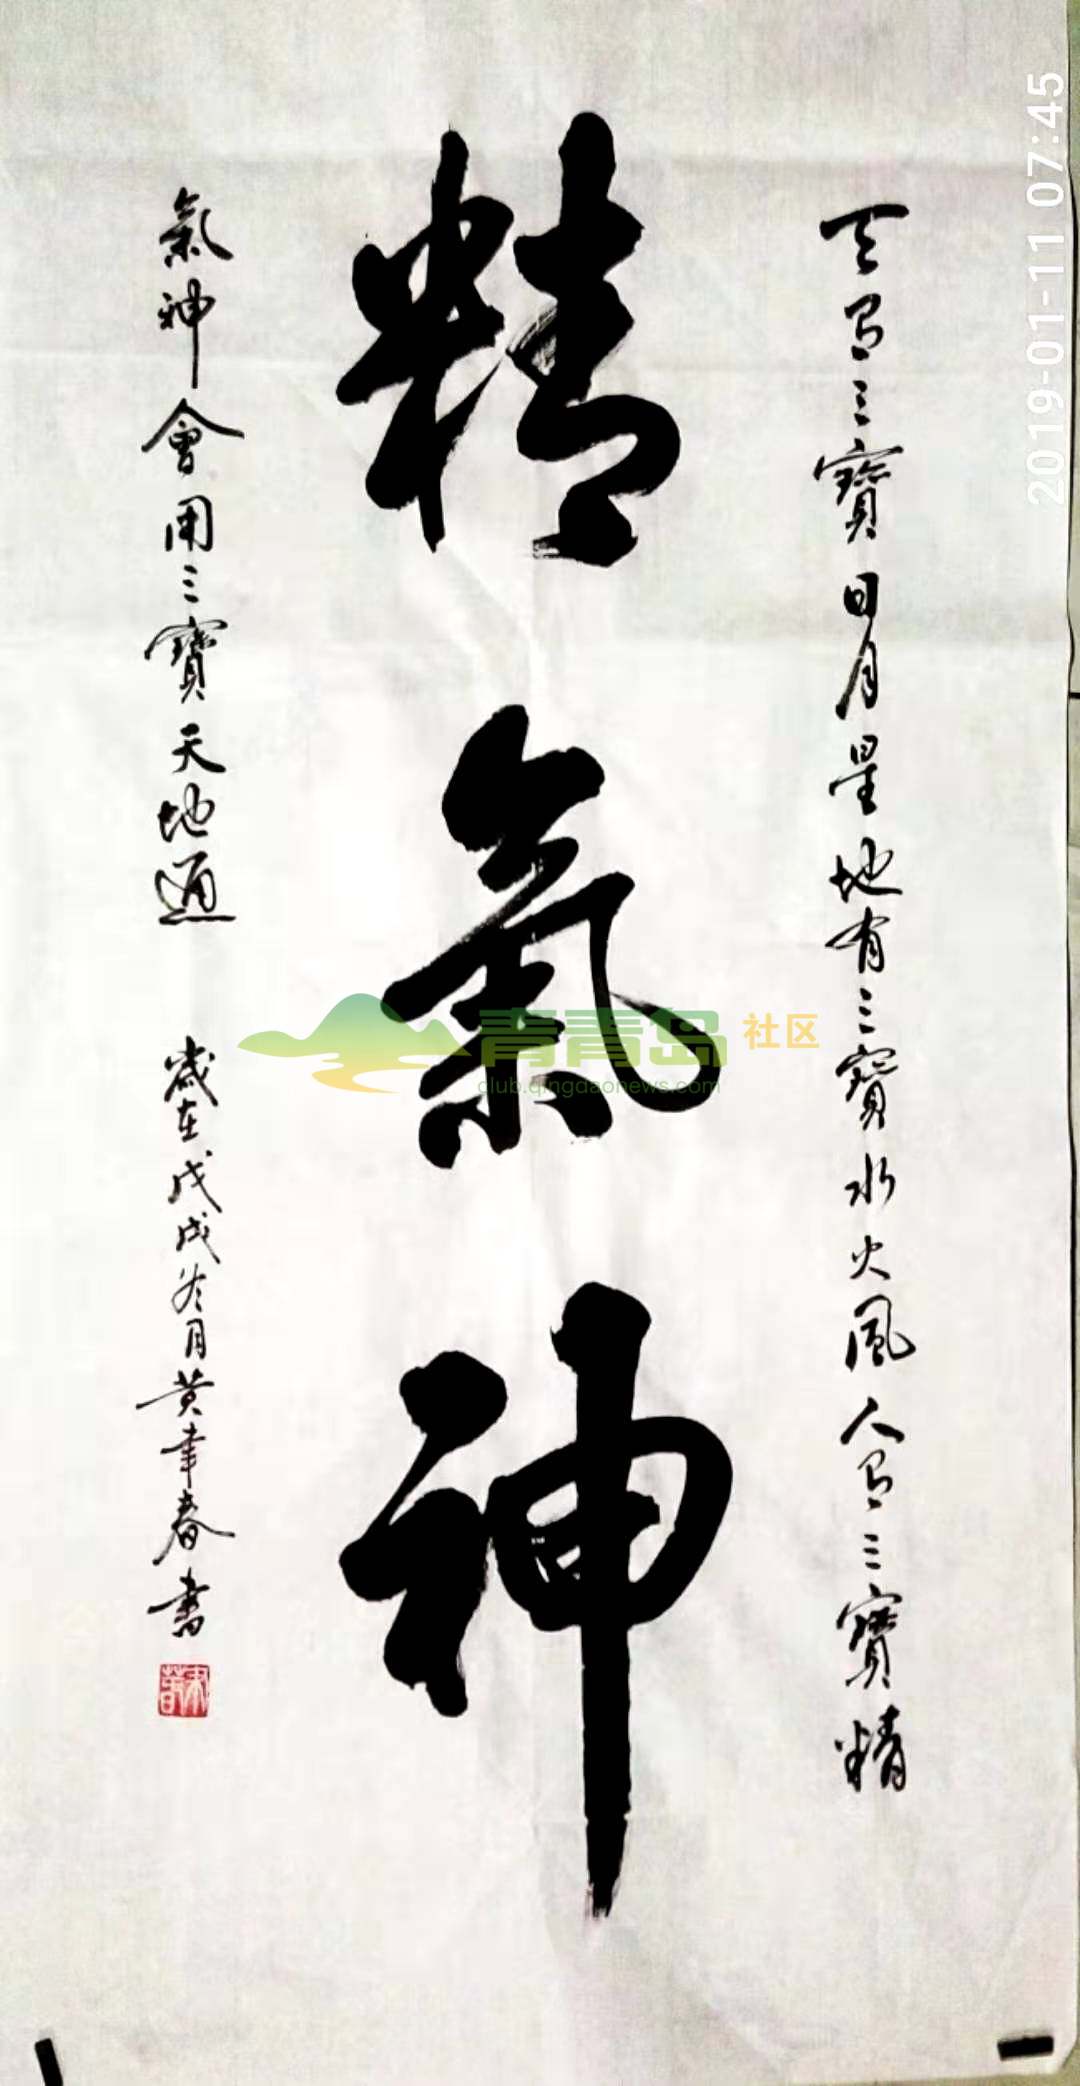 天有三寶日月星地有三寶水火風人有三寶精
精氣神
氣神會用三寶天地通
歲在戊戌冬月黄幸春書
青青岛社区
club.qingdaonews.com
2019-01-11 07:45